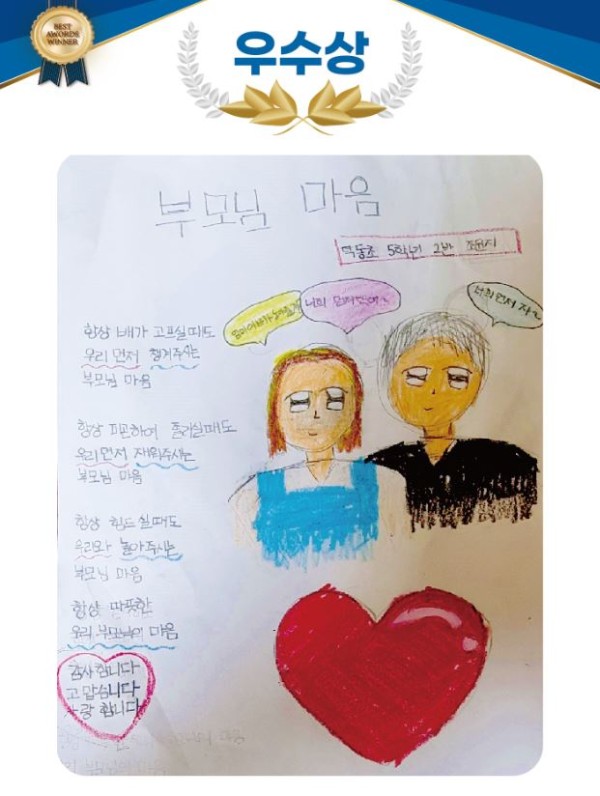 BEST
AWORDS
WINNER
우수상
부모님 마음
5학년 2반
너희 먼저먹어~
너희 먼저 자~
항상 배가 고프실때도
우리 먼저 챙겨주시는
부모님 마음
항상 피곤하여 졸리실때도
우리먼저 재워주시는
부모님 마음
항상 힘드실때도
우리와 놀아주시는
부모님 마음
항상 따뜻한
우리 부모님의 마음
감사합니다
고맙습니다
사랑합니다